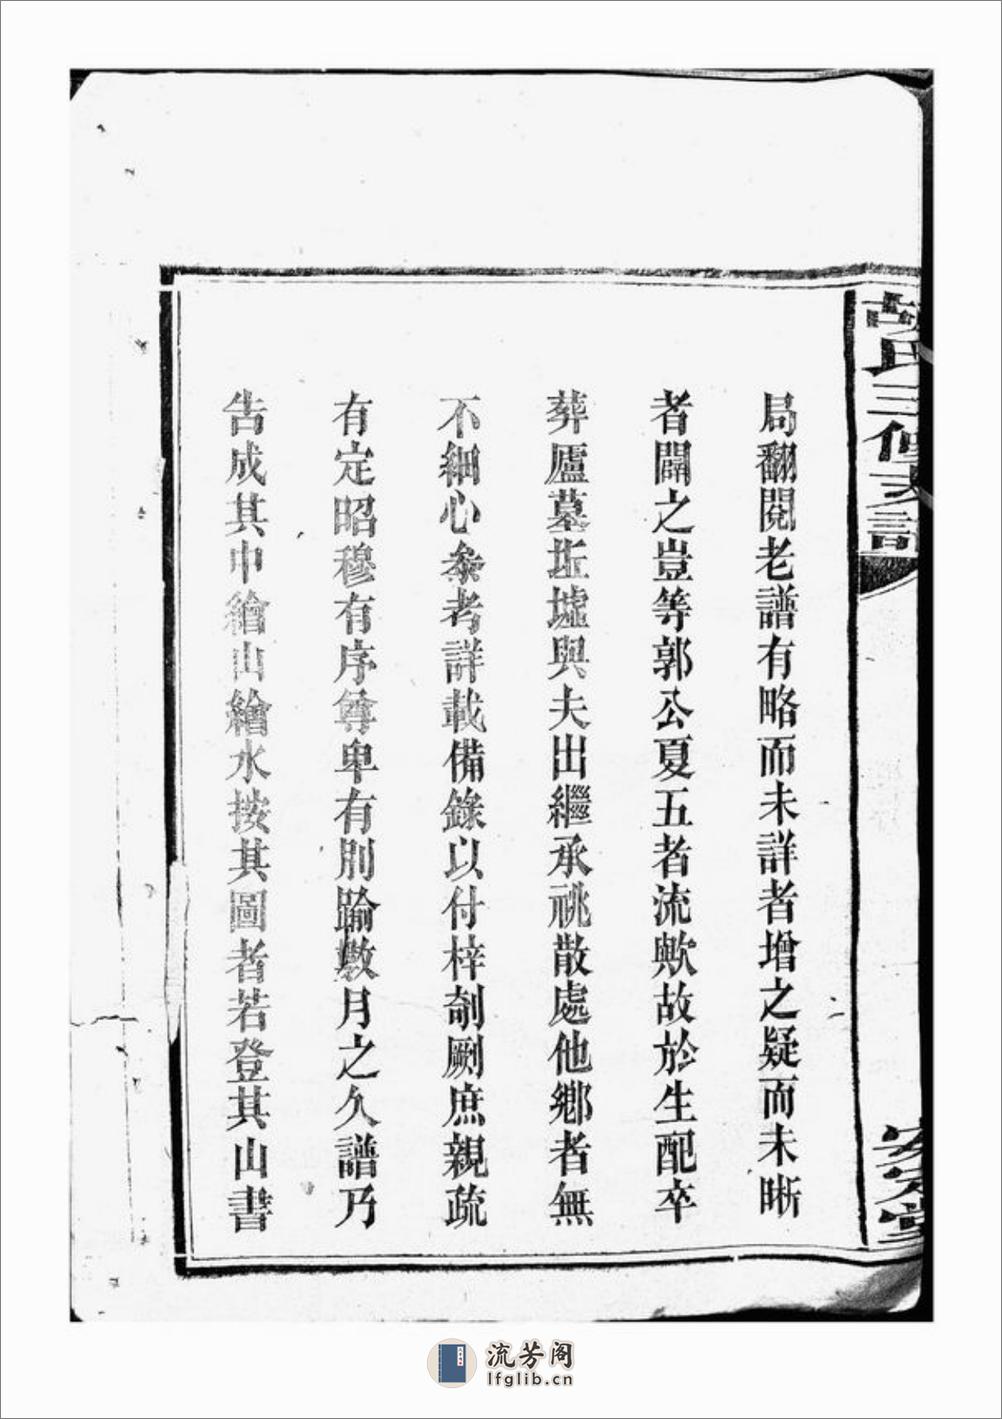 胡氏三修支譜
安定堂
局翻閱老譜有略而未詳者增之疑而未晰
者闕之豈等郭公夏五者流歟故於生配卒
葬廬墓坵墟與夫出繼承祧散處他鄉者無
不細心叅考詳載備錄以付梓剞劂庶親疏
有定昭穆有序尊卑有別踰數月之久譜乃
告成其中繪山繪水按其圖者若登其山書
流芳阁
lfglib.cn